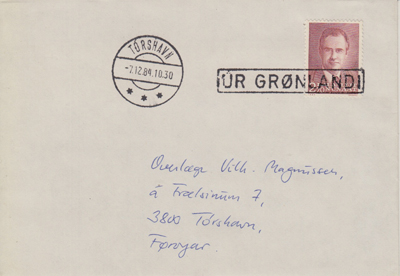 TÓRSHAVN
-7.12.84.10.30
ÚR GRØNLANDI
Overlæge Vilh. Magnussen,
á Frælsinum 7,
3800 Tórshavn,
Føroyar.